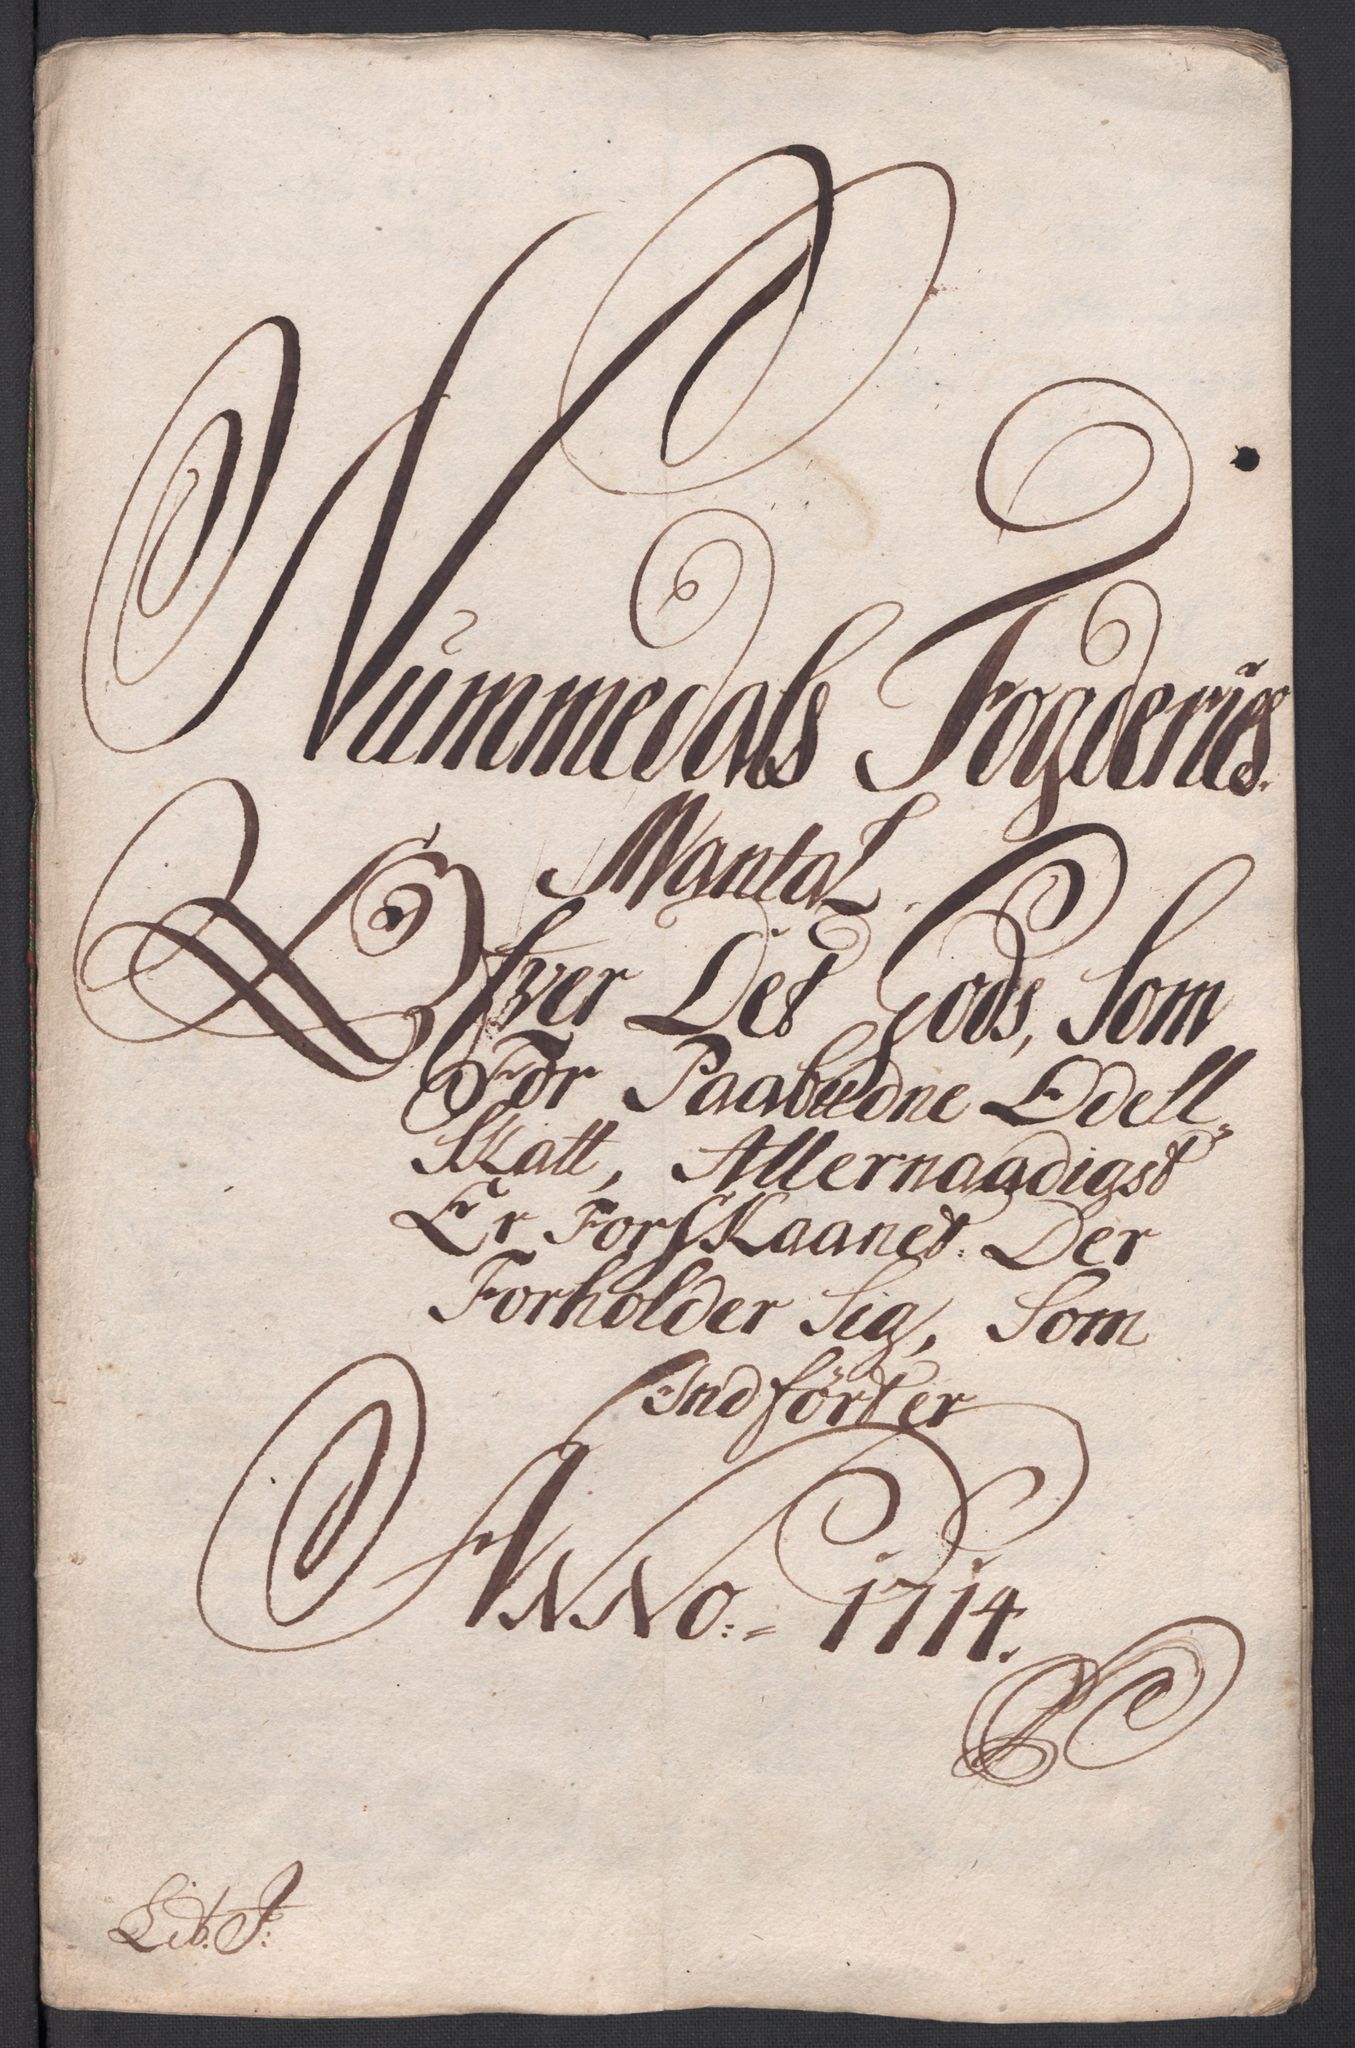 Nummedals Fogderies
Mantal.
Ofver Det Gods, Som
For Paabudne Odell,
Skatt, Allernaadigst
Er ForsKaanet. Der
Forholder Sig, Som
Indförter
ANNO:= 1714.
Lit. J: